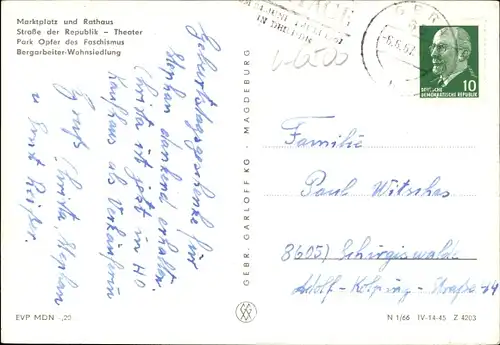 Marktplatz und Rathaus
Straße der Republik – Theater
Park Opfer des Faschismus
Bergarbeiter-Wohnsiedlung
Geburtstagsgeschenke für
Stephan dankend erhalten.
Christa ist jetzt in HO
Kaufhaus als Verkäuferin
Gruß Christa, Stephan
u Ernst
EVP MDN -,20
GEBR. GARLOFF KG · MAGDEBURG
GER
-6.6.67
10
DEUTSCHE
DEMOKRATISCHE REPUBLIK
Familie
Paul Witschas
8605) Schirgiswalde
Adolf-Kolping-Straße 14
N 1/66 IV-14-45 Z 4203